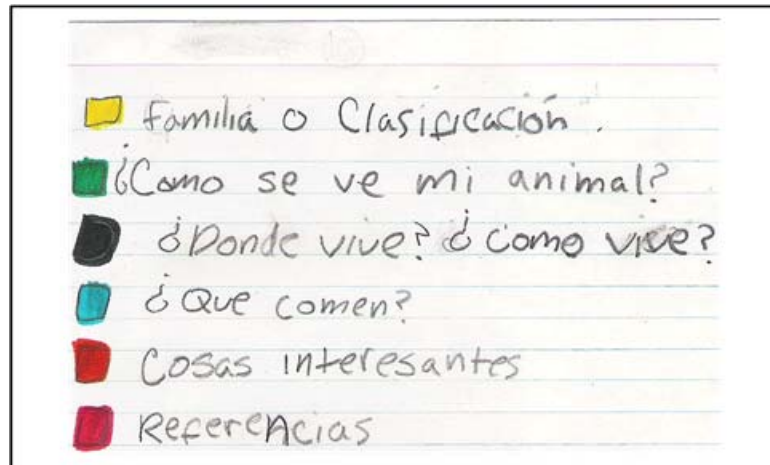 Familia o Clasificación.
¿Como se ve mi animal?
¿Donde vive? ¿Como vive?
¿Que comen?
Cosas interesantes
Referencias